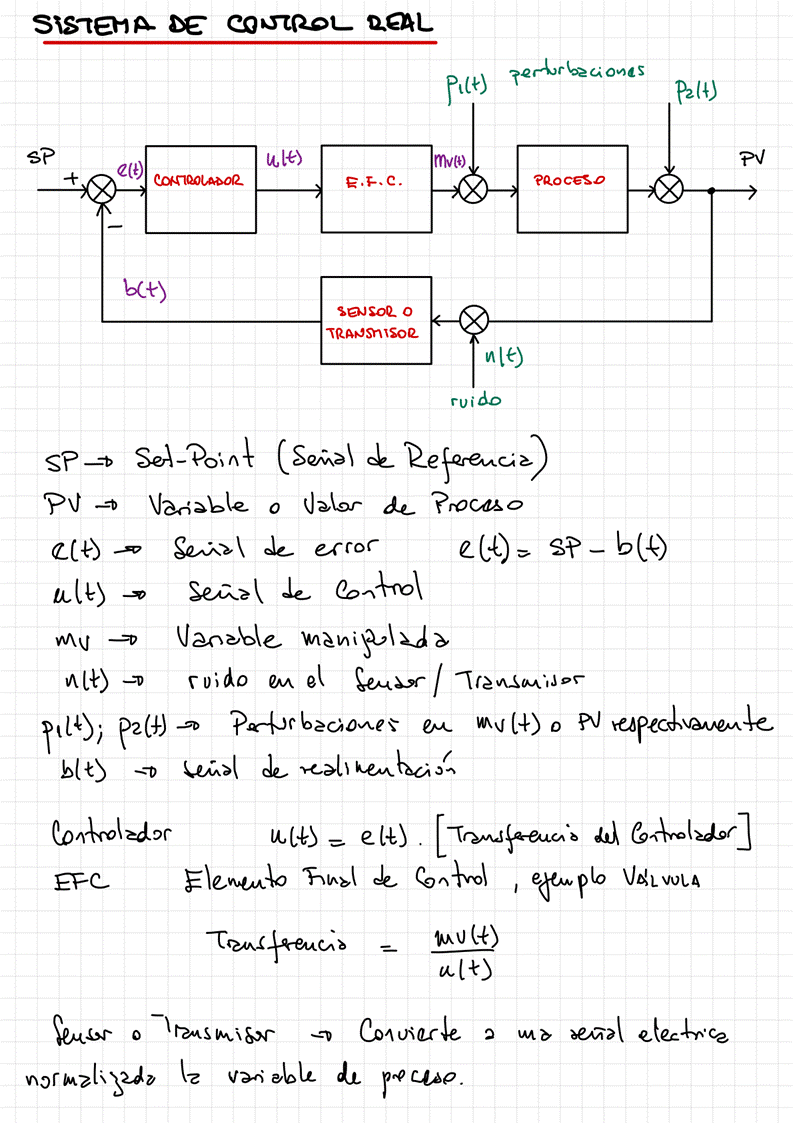 SISTEMA DE CONTROL REAL
p1(t) perturbaciones p2(t)
SP + e(t) CONTROLADOR u(t) E.F.C. mv(t) PROCESO PV
−
b(t)
SENSOR O
TRANSMISOR
n(t)
ruido
SP → Set-Point (Señal de Referencia)
PV → Variable o Valor de Proceso
e(t) → Señal de error e(t) = SP - b(t)
u(t) → Señal de Control
mv → Variable manipulada
n(t) → ruido en el Sensor / Transmisor
p1(t); p2(t) → Perturbaciones en mv(t) o PV respectivamente
b(t) → señal de realimentación
Controlador u(t) = e(t) . [Transferencia del Controlador]
EFC Elemento Final de Control, ejemplo VÁLVULA
Transferencia = mv(t)
u(t)
Sensor o Transmisor → Convierte a una señal electrica
normalizada la variable de proceso.